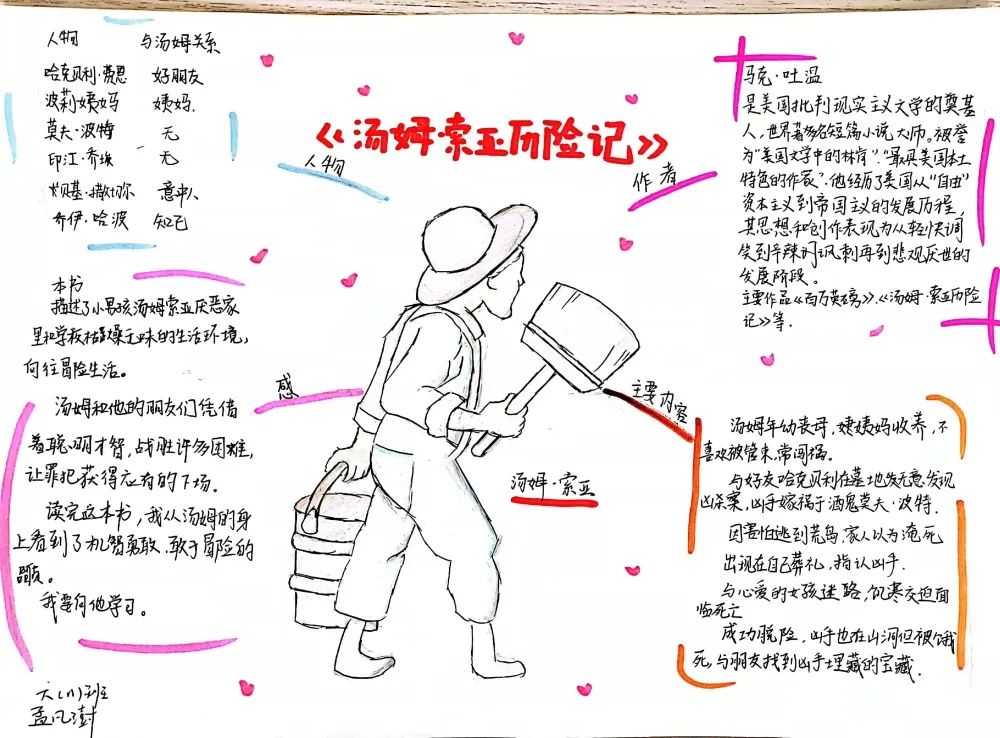 《汤姆·索亚历险记》
人物
人物 与汤姆关系
哈克贝利·费恩 好朋友
波莉姨妈 姨妈.
莫夫·波特 无
印江·乔埃 无
贝基·撒切尔 意中人
乔伊·哈波 知己
作者
马克·吐温
是美国批判现实主义文学的奠基
人,世界著名短篇小说大师。被誉
为"美国文学中的林肯"."最具美国本土
特色的作家".他经历了美国从"自由"
资本主义到帝国主义的发展历程,
其思想和创作表现为从轻快调
笑到辛辣讽刺再到悲观厌世的
发展阶段。
主要作品《百万英磅》.《汤姆·索亚历险
记》等.
感
本书
描述了小男孩汤姆索亚厌恶家
里和学校枯燥无味的生活环境,
向往冒险生活。
汤姆和他的朋友们凭借
着聪明才智,战胜许多困难,
让罪犯获得应有的下场.
读完这本书,我从汤姆的身
上看到了机智勇敢,敢于冒险的
品质。
我要向他学习。
主要内容
汤姆年幼丧母,姨姨妈收养,不
喜欢被管束.常闯祸。
与好友哈克贝利在墓地无意发现
凶杀案,凶手嫁祸于酒鬼莫夫·波特.
因害怕逃到荒岛,家人以为淹死
出现在自己葬礼,指认凶手.
与心爱的女孩迷路,饥寒交迫面
临死亡
成功脱险,凶手也在山洞但被饿
死,与朋友找到凶手埋藏的宝藏.
汤姆·索亚
六(1)班
孟凡澍